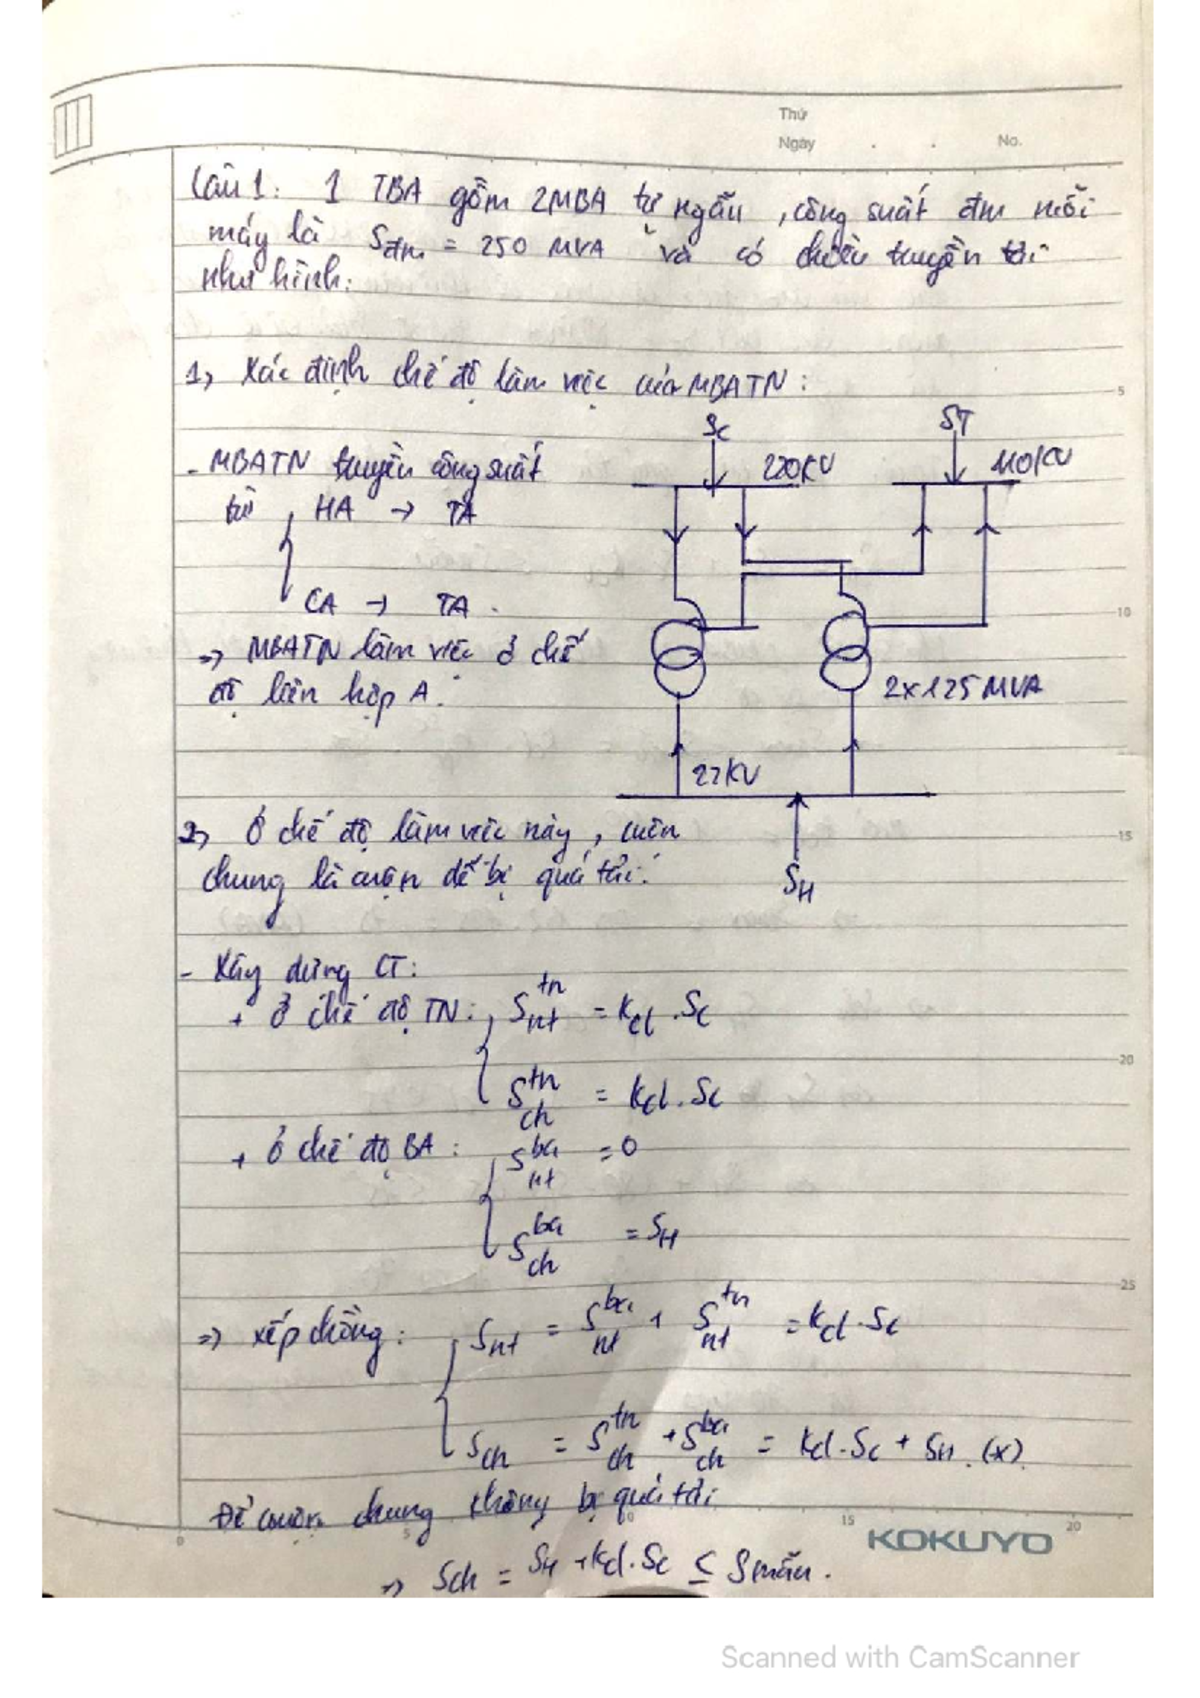 Thứ
Ngày . . No.
Câu 1: 1 TBA gồm 2MBA tự ngẫu, công suất đm mỗi
máy là Sđm = 250 MVA và có chiều truyền tải
như hình:
1, Xác định chế độ làm việc của MBATN:
- MBATN truyền công suất
từ HA → TA
CA → TA.
=> MBATN làm việc ở chế
độ liên hợp A.
Sc
ST
220KV
110KV
2x125 MVA
22KV
SH
2, Ở chế độ làm việc này, cuộn
chung là cuộn dễ bị quá tải:
- Xây dựng CT:
+ Ở chế độ TN: S nt tn = Kcl . Sc
S ch tn = Kcl . Sc
+ Ở chế độ BA: S nt ba = 0
S ch ba = SH
=> xếp chồng: Snt = S nt ba + S nt tn = Kcl . Sc
Sch = S ch tn + S ch ba = Kcl . Sc + SH . (x)
Để cuộn chung không bị quá tải
=> Sch = SH + Kcl . Sc ≤ Smẫu .
5
10
15
20
25
0
5
10
15
20
KOKUYO
Scanned with CamScanner